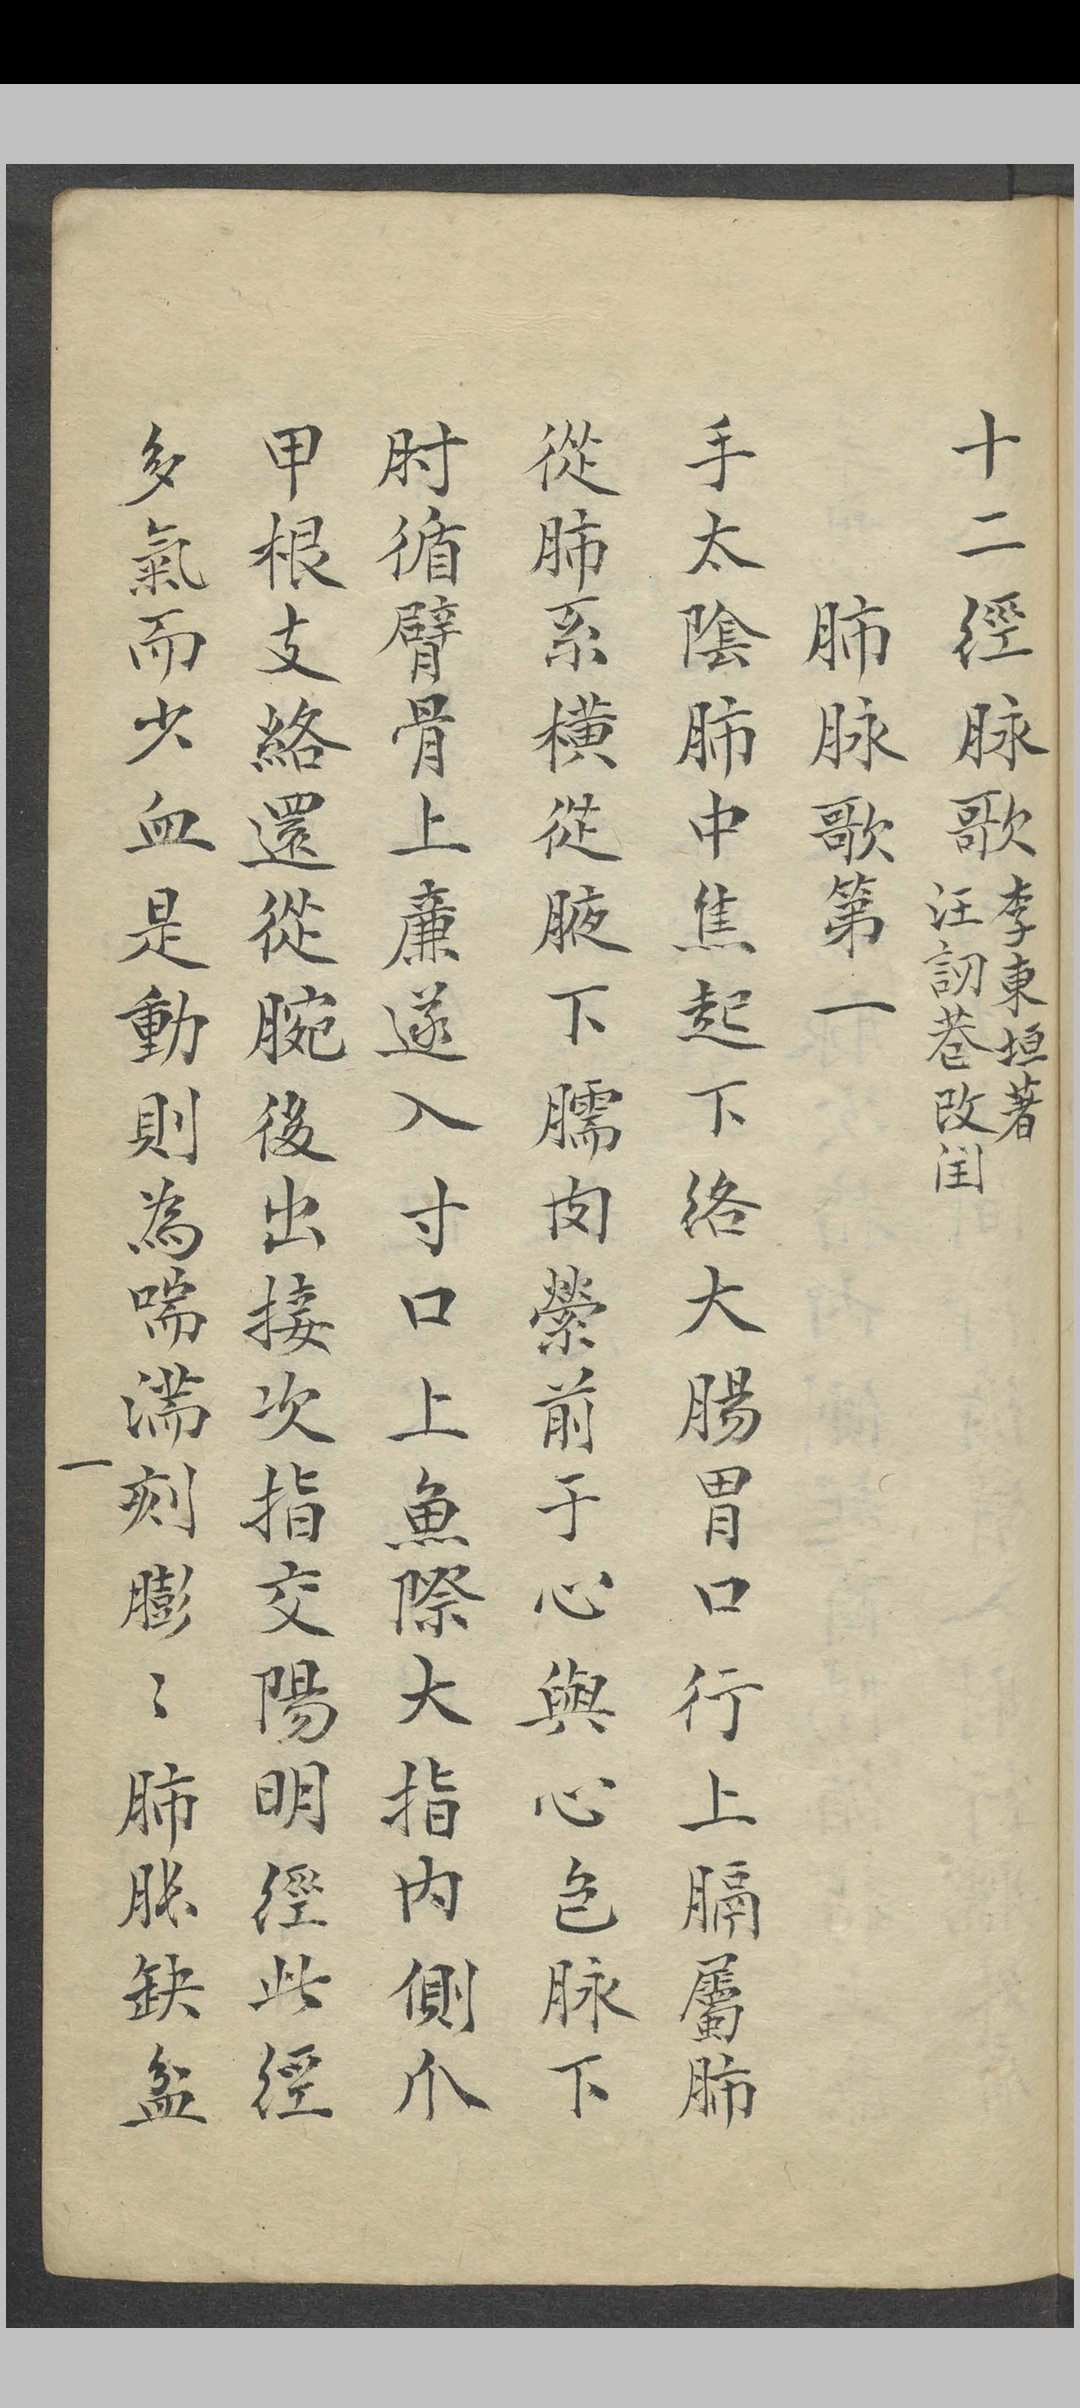 十二經脉歌 李東垣著
汪訒菴改闰
肺脉歌第一
手太陰肺中焦起下络大腸胃口行上膈屬肺
從肺系横從腋下臑肉縈前于心與心包脉下
肘循臂骨上廉遂入寸口上魚際大指内側爪
甲根支絡還從腕後出接次指交陽明經此經
多氣而少血是動則為喘满刻膨〻肺胀缺盆
一